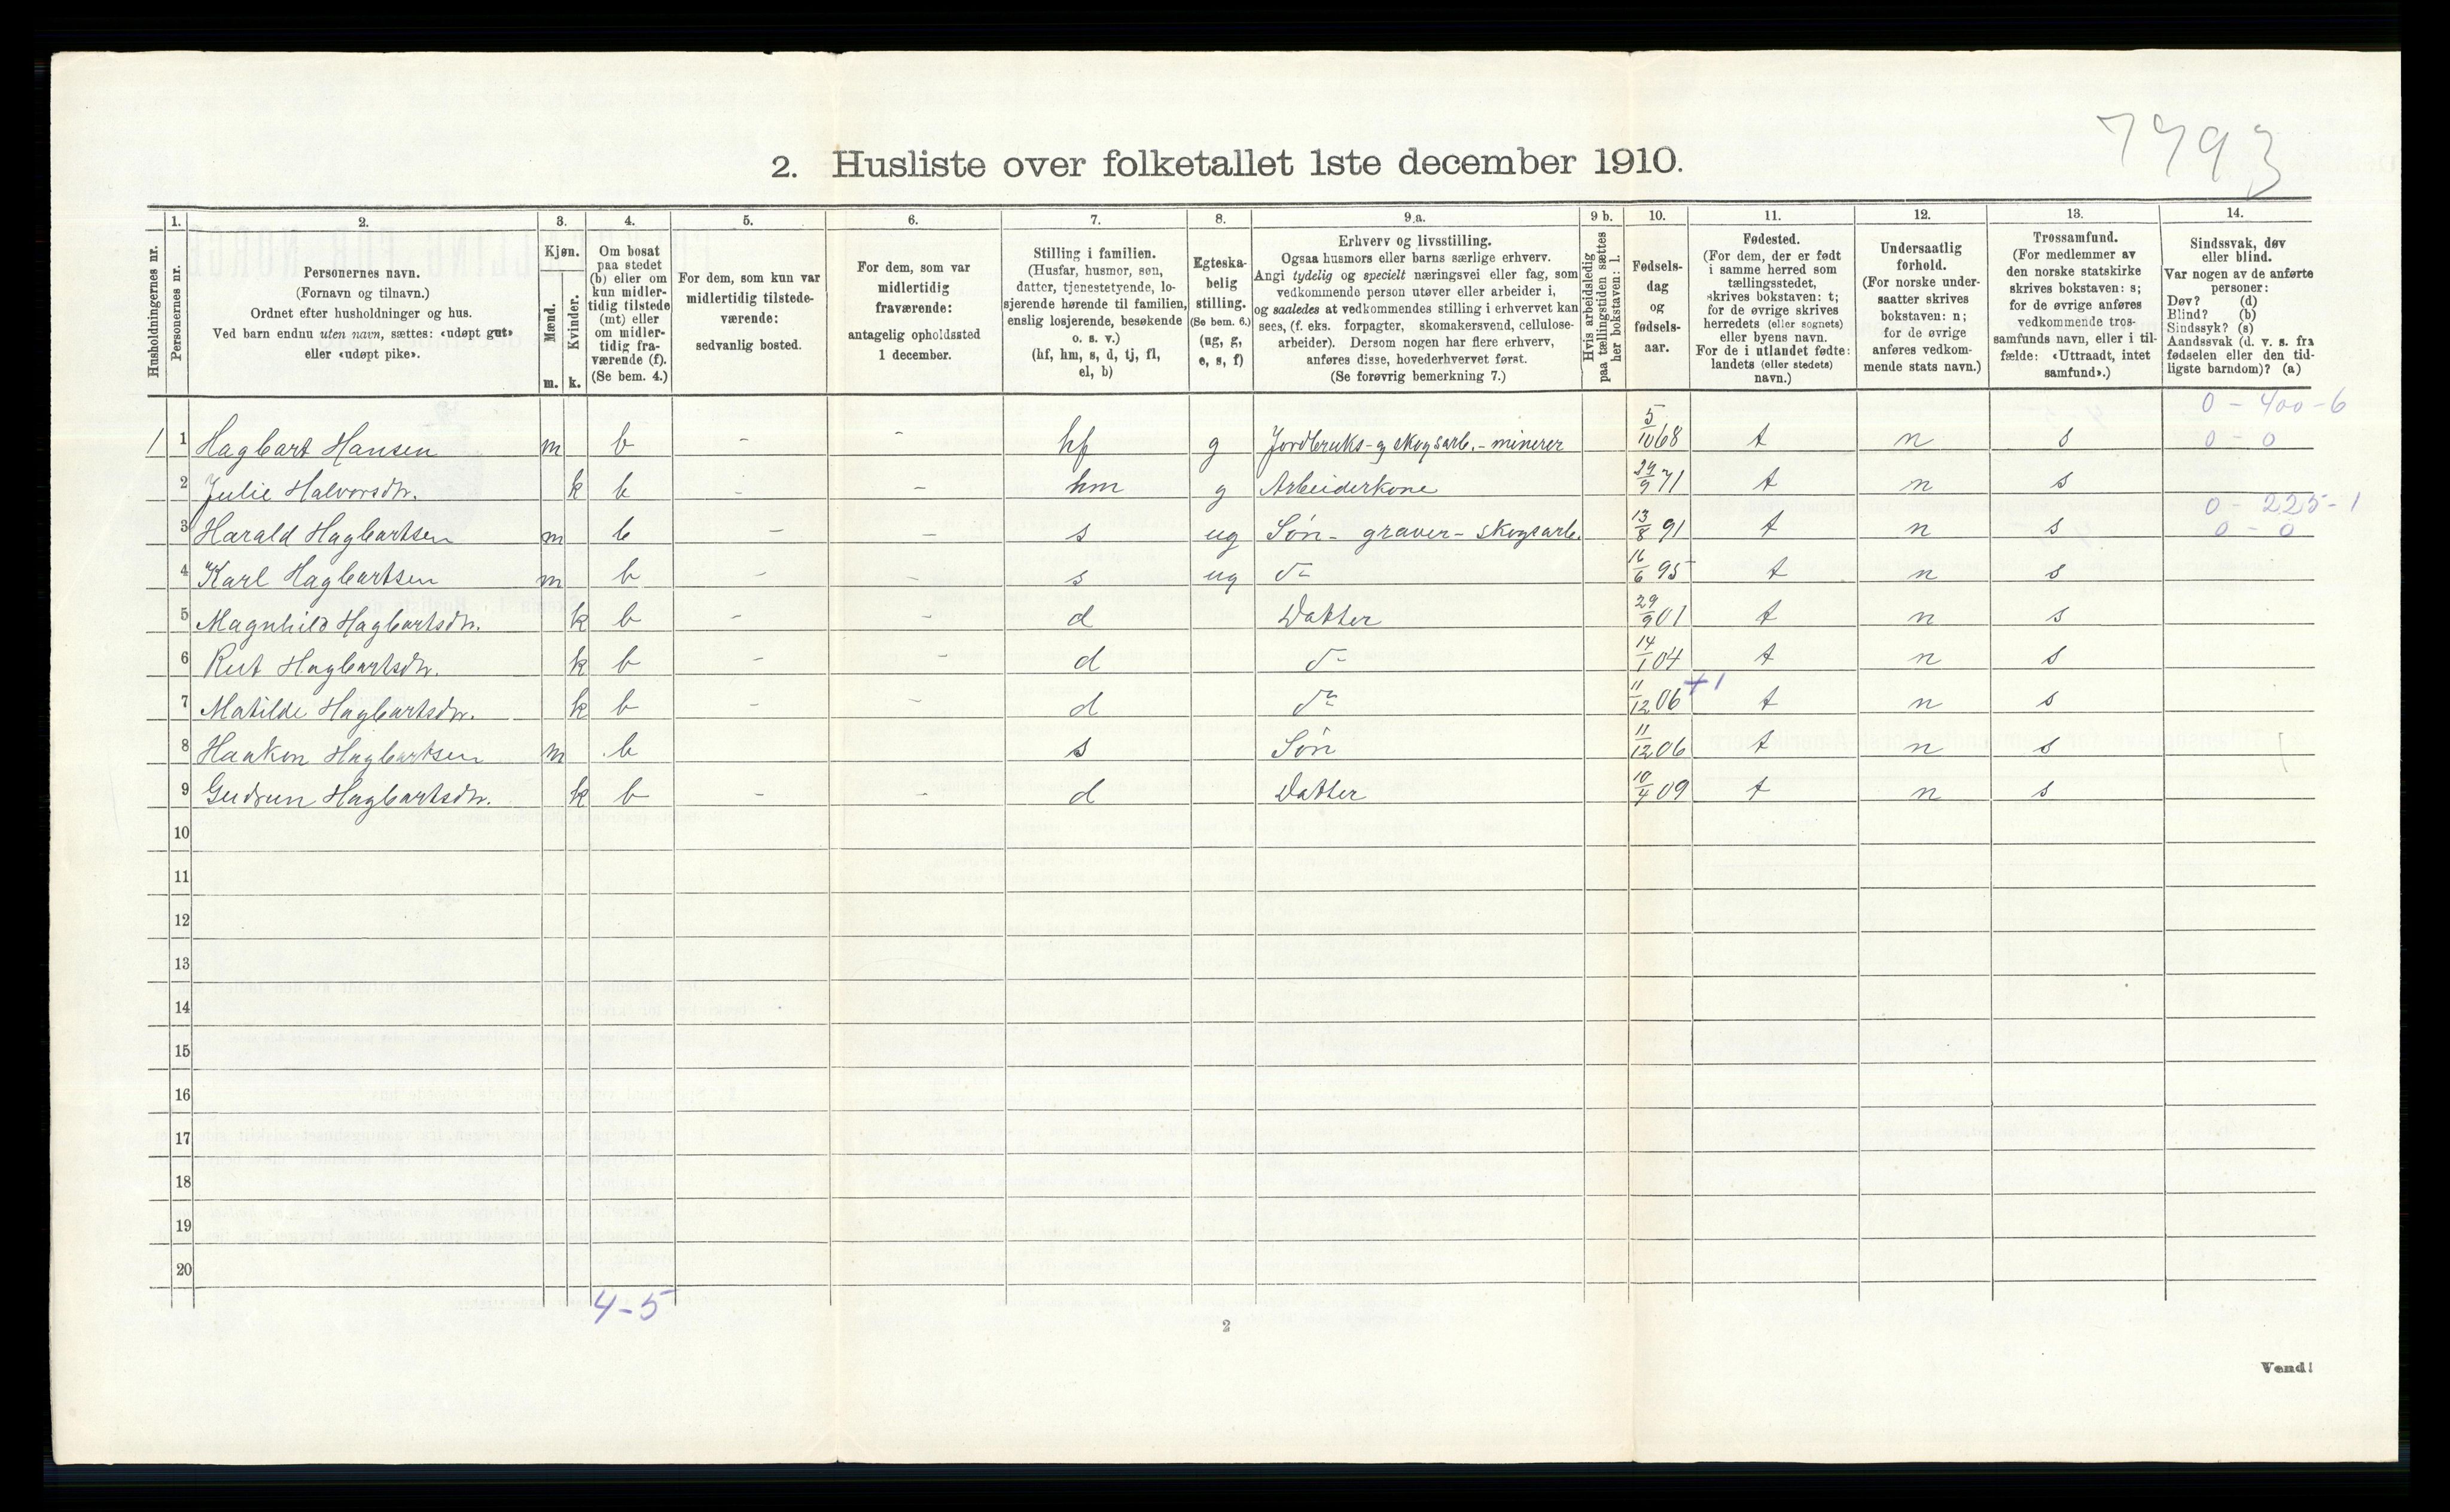 7793
2. Husliste over folketallet 1ste december 1910.
Husholdningernes nr.
1. Personernes nr.
2. Personernes navn.
(Fornavn og tilnavn.)
Ordnet efter husholdninger og hus.
Ved barn endnu uten navn, sættes: «udøpt gut»
eller «udøpt pike».
3. Kjøn.
Mænd. m.
Kvinder. k.
4. Om bosat
paa stedet
(b) eller om
kun midler-
tidig tilstede
(mt) eller
om midler-
tidig fra-
værende (f).
(Se bem. 4.)
5. For dem, som kun var
midlertidig tilstede-
værende:
sedvanlig bosted.
6. For dem, som var
midlertidig
fraværende:
antagelig opholdssted
1 december.
7. Stilling i familien.
(Husfar, husmor, søn,
datter, tjenestetyende, lo-
sjerende hørende til familien,
enslig losjerende, besøkende
o. s. v.)
(hf, hm, s, d, tj, fl,
el, b)
8. Egteska-
belig
stilling.
(Se bem. 6.)
(ug, g,
e, s, f)
9.a. Erhverv og livsstilling.
Ogsaa husmors eller barns særlige erhverv.
Angi tydelig og specielt næringsvei eller fag, som
vedkommende person utøver eller arbeider i,
og saaledes at vedkommendes stilling i erhvervet kan
sees, (f. eks. forpagter, skomakersvend, cellulose-
arbeider). Dersom nogen har flere erhverv,
anføres disse, hovederhvervet først.
(Se forøvrig bemerkning 7.)
9 b. Hvis arbeidsledig
paa tællingstiden sættes
her bokstaven: l.
10. Fødsels-
dag
og
fødsels-
aar.
11. Fødested.
(For dem, der er født
i samme herred som
tællingsstedet,
skrives bokstaven: t;
for de øvrige skrives
herredets (eller sognets)
eller byens navn.
For de i utlandet fødte:
landets (eller stedets)
navn.)
12. Undersaatlig
forhold.
(For norske under-
saatter skrives
bokstaven: n;
for de øvrige
anføres vedkom-
mende stats navn.)
13. Trossamfund.
(For medlemmer av
den norske statskirke
skrives bokstaven: s;
for de øvrige anføres
vedkommende tros-
samfunds navn, eller i til-
fælde: «Uttraadt, intet
samfund».)
14. Sindssvak, døv
eller blind.
Var nogen av de anførte
personer:
Døv? (d)
Blind? (b)
Sindssyk? (s)
Aandssvak (d. v. s. fra
fødselen eller den tid-
ligste barndom)? (a)
0 - 400 - 6
1 1 Hagbart Hansen m b - - hf g Jordbruks- og skogsarb. - minerer 5/10 68 t n s 0 - 0
2 Julie Halvorsdtr. k b - - hm g Arbeiderkone 24/9 71 t n s
0 - 225 - 1
3 Harald Hagbartsen m b - - s ug Søn - graver - skogsarb. 13/8 91 t n s 0 - 0
4 Karl Hagbartsen m b - - s ug do 16/6 95 t n s
5 Magnhild Hagbartsdtr. k b - - d Datter 29/9 01 t n s
6 Rut Hagbartsdtr. k b - - d do 14/1 04 t n s
+1
7 Matilde Hagbartsdtr. k b - - d do 11/12 06 t n s
8 Haakon Hagbartsen m b s Søn 11/12 06 t n s
9 Gudrun Hagbartsdtr. k b - - d Datter 10/4 09 t n s
10
11
12
13
14
15
16
17
18
19
20
4-5
2
Vend!